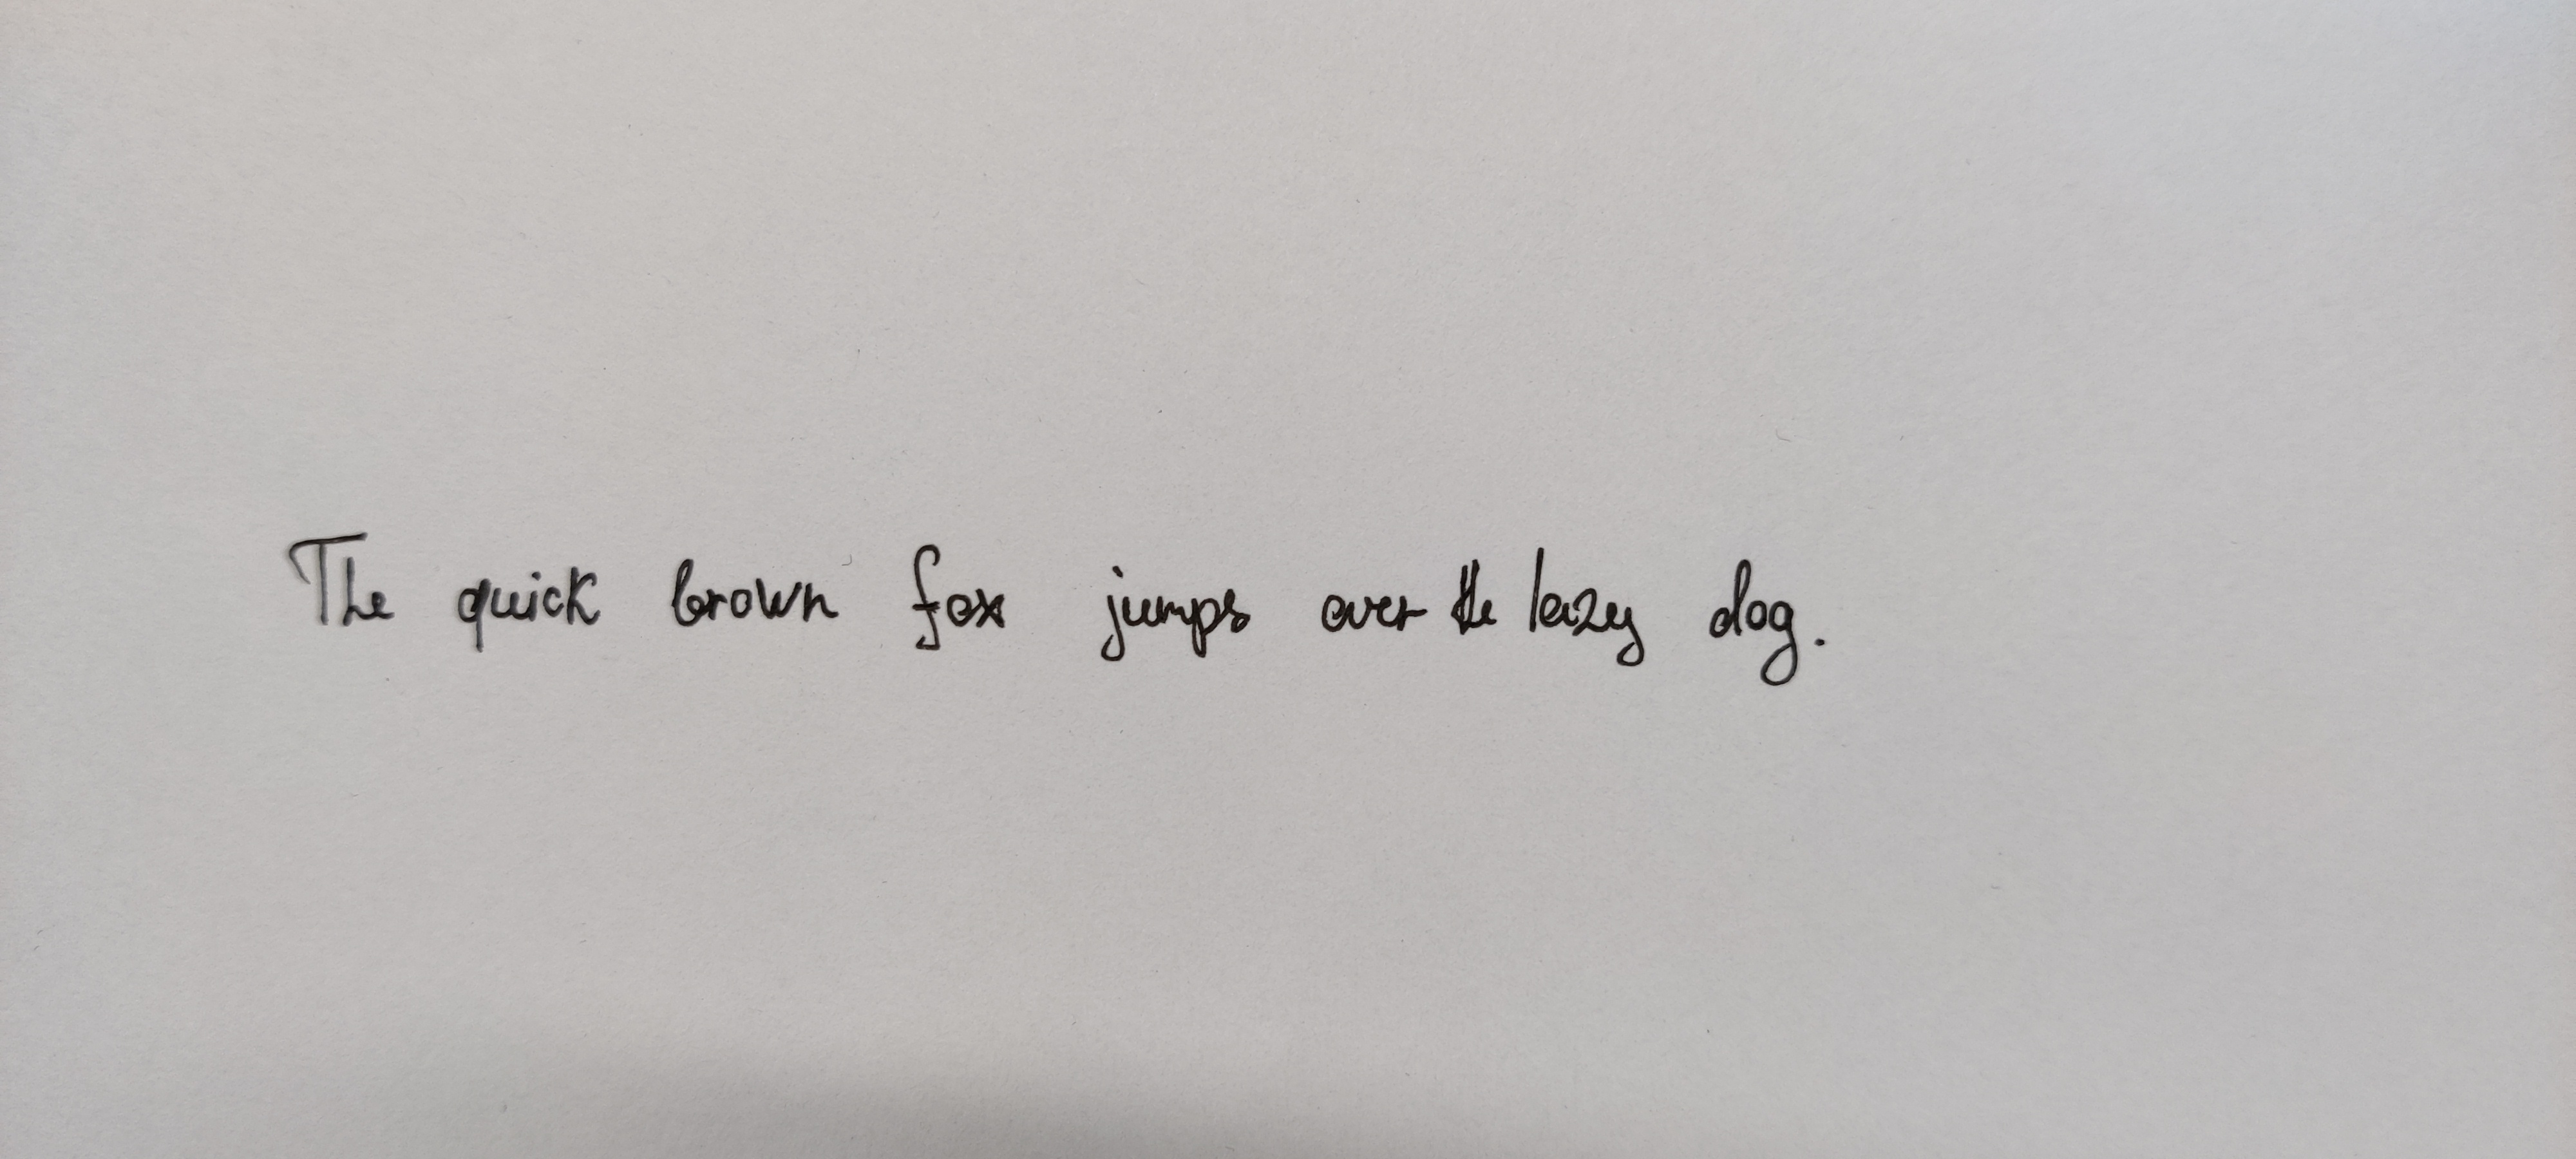 The quick brown fox jumps over the lazy dog.